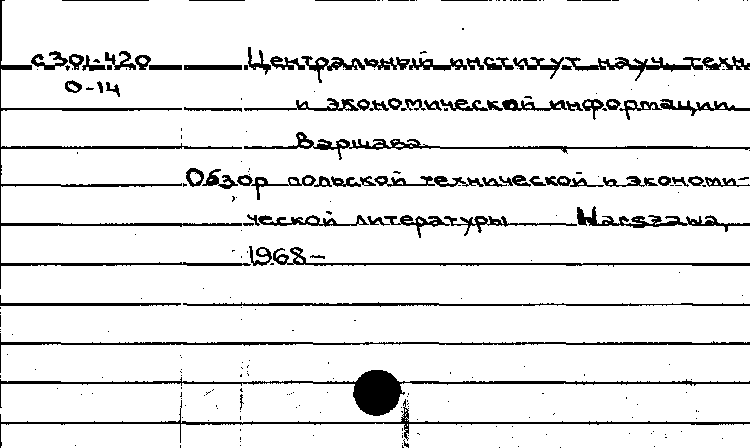 с301.420 Центральный институт науч. техн.
О-14 и экономической информации.
Варшава.
Обзор польской технической и экономи-
ческой литературы Warszawa,
1968-